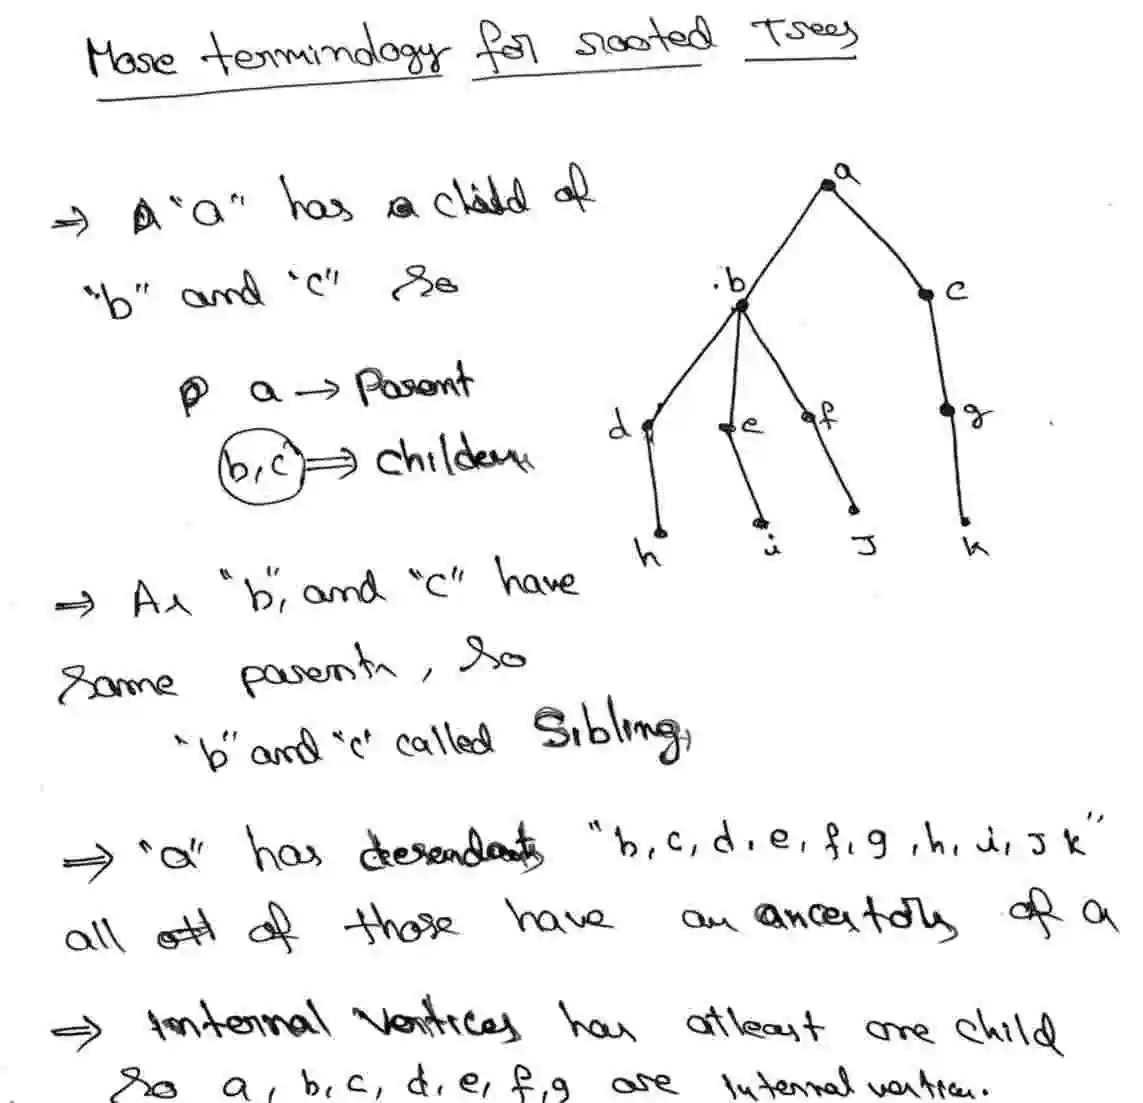 More terminology for rooted Trees
⇒ "a" has a child of
"b" and "c" so
a → Parent
b,c ⇒ children
⇒ As "b", and "c" have
same parents, so
"b" and "c" called Sibling,
⇒ "a" has desendants "b, c, d, e, f, g, h, i, J k"
all of those have an ancestors of a
⇒ Internal vertices has atleast one child
So a, b, c, d, e, f, g are Internal vertices.
a
b
c
d
e
f
g
h
i
J
k